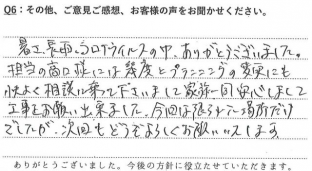 Q6：その他、ご意見ご感想、お客様の声をお聞かせください。
暑さ、長雨、コロナウイルスの中、ありがとうございました。
担当の高口様には幾度とプランニングの変更にも
快よく相談に乗って下さいまして家族一同安心しまして
工事をお願い出来ました。今回は限られた場所だけ
でしたが、次回もどうぞよろしくお願いいたします
ありがとうございました。今後の方針に役立たせていただきます。